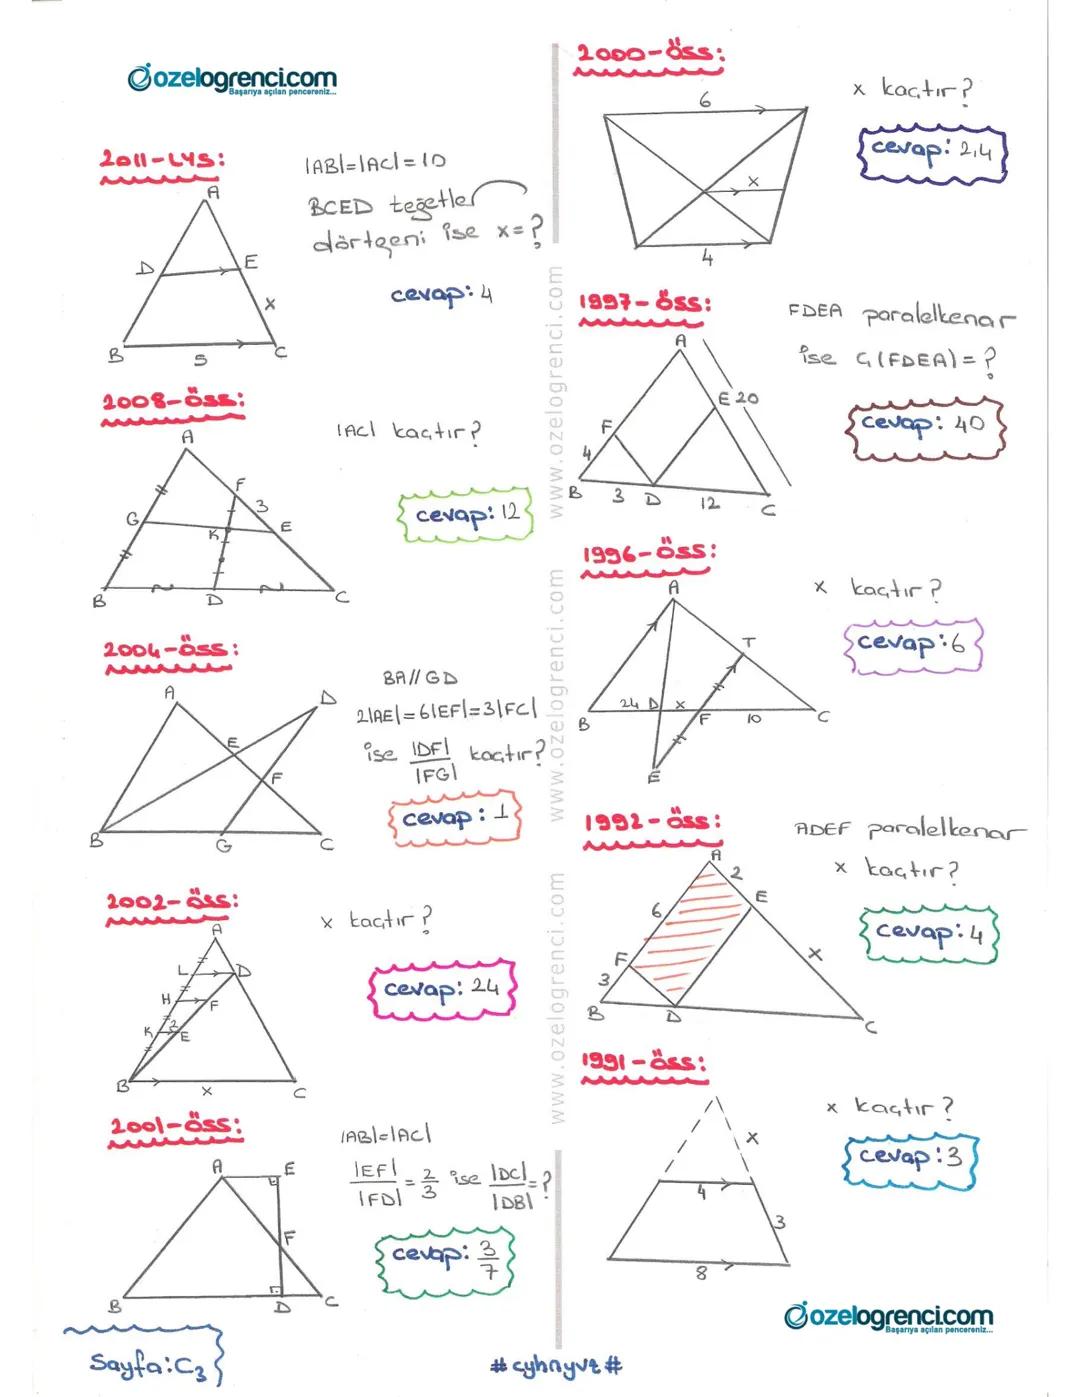 ozelogrenci.com
Başarıya açılan pencereniz...
2011-LYS:
|AB|=|AC|=10
BCED teğetler
dörtgeni ise x=?
cevap: 4
A
D
E
x
B
5
C
2008-öss:
|AC| kaçtır?
cevap: 12
A
F
3
G
K
E
B
D
C
2004-öss:
BA//GD
2|AE|=6|EF|=3|FC|
ise |DF|/|FG| kaçtır?
cevap: 1
A
D
E
F
B
G
C
2002-öss:
x kaçtır?
cevap: 24
A
L
D
H
F
K
2
E
B
x
C
2001-öss:
|AB|=|AC|
|EF|/|FD| = 2/3 ise |DC|/|DB| = ?
cevap: 3/7
A
E
F
B
D
C
Sayfa: C3
www.ozelogrenci.com
www.ozelogrenci.com
www.ozelogrenci.com
2000-öss:
x kaçtır?
cevap: 2,4
6
x
4
1997-öss:
FDEA paralelkenar
ise Ç(FDEA)=?
cevap: 40
A
E
20
F
4
B
3
D
12
C
1996-öss:
x kaçtır?
cevap: 6
A
T
B
24
D
x
F
10
C
E
1992-öss:
ADEF paralelkenar
x kaçtır?
cevap: 4
A
2
E
6
F
x
3
B
D
C
1991-öss:
x kaçtır?
cevap: 3
x
4
3
8
ozelogrenci.com
Başarıya açılan pencereniz...
#cyhnyvz#